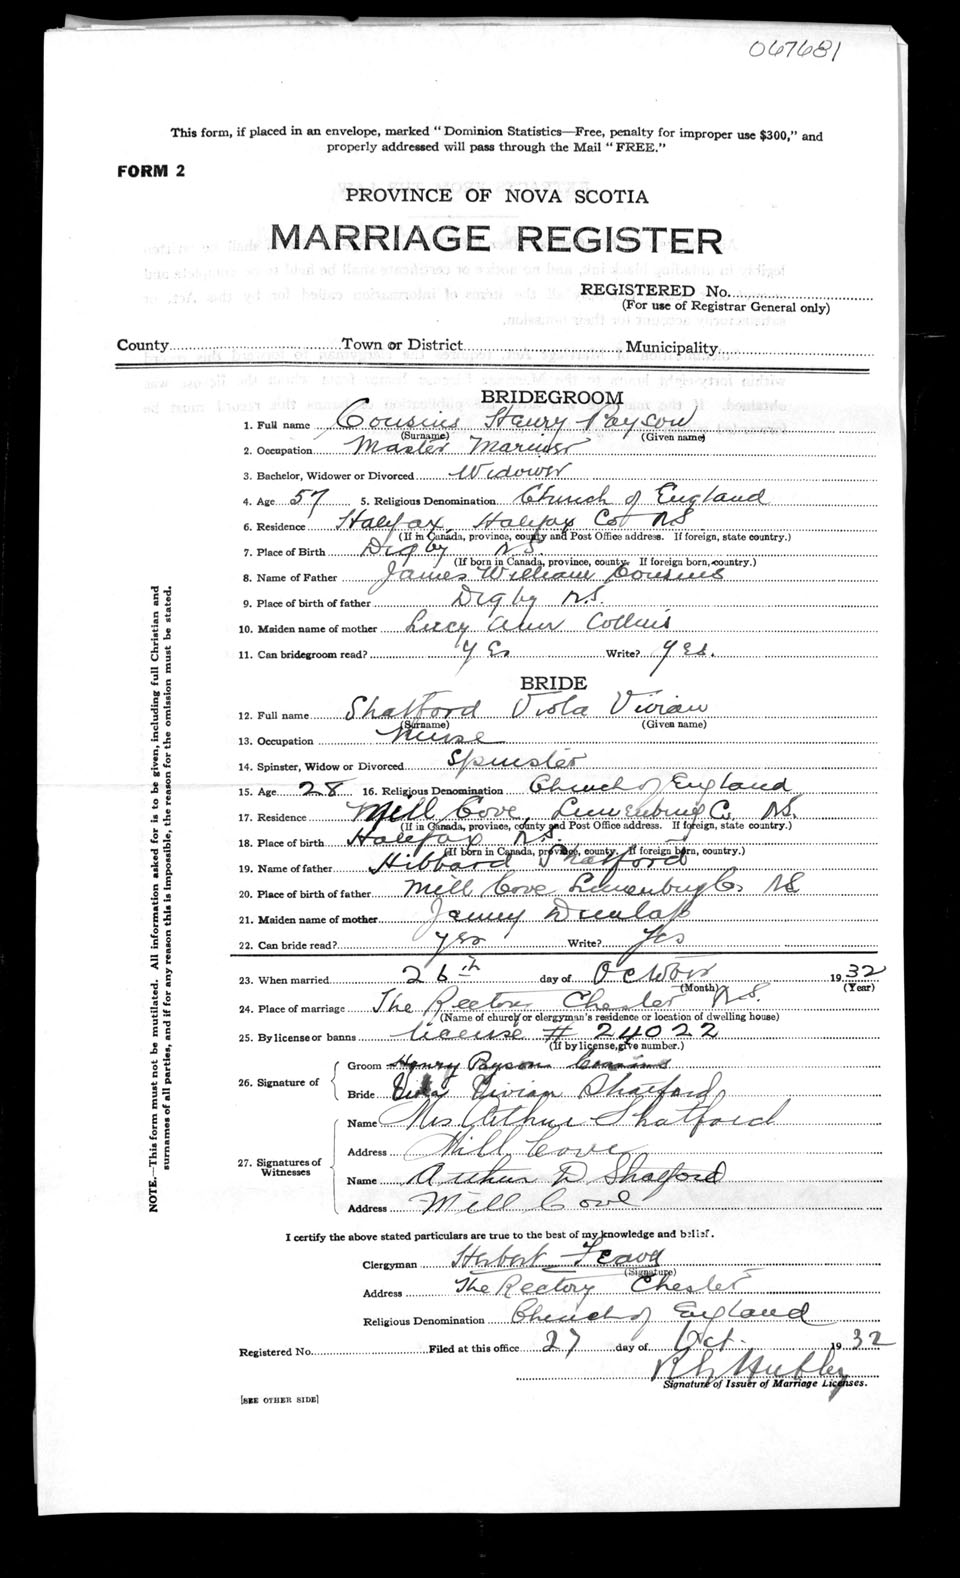 067681
This form, if placed in an envelope, marked "Dominion Statistics—Free, penalty for improper use $300," and
properly addressed will pass through the Mail "FREE."
FORM 2
PROVINCE OF NOVA SCOTIA
MARRIAGE REGISTER
REGISTERED No.
(For use of Registrar General only)
County Town or District Municipality
BRIDEGROOM
1. Full name Cousins Henry Payson
(Surname) (Given name)
2. Occupation Master Mariner
3. Bachelor, Widower or Divorced Widower
4. Age 57 5. Religious Denomination Church of England
6. Residence Halifax, Halifax Co NS
(If in Canada, province, county and Post Office address. If foreign, state country.)
7. Place of Birth Digby N.S.
(If born in Canada, province, county. If foreign born, country.)
8. Name of Father James William Cousins
9. Place of birth of father Digby N.S.
10. Maiden name of mother Lucy Ann Collins
11. Can bridegroom read? Yes Write? Yes.
BRIDE
12. Full name Shatford Viola Vivian
(Surname) (Given name)
13. Occupation Nurse
14. Spinster, Widow or Divorced Spinster
15. Age 28 16. Religious Denomination Church of England
17. Residence Mill Cove, Lunenburg Co. N.S.
(If in Canada, province, county and Post Office address. If foreign, state country.)
18. Place of birth Halifax N.S.
(If born in Canada, province, county. If foreign born, country.)
19. Name of father Hibbard Shatford
20. Place of birth of father Mill Cove Lunenburg Co NS
21. Maiden name of mother Jenny Dunlap
22. Can bride read? Yes Write? Yes
23. When married 26th day of October 1932
(Month) (Year)
24. Place of marriage The Rectory Chester N.S.
(Name of church or clergyman's residence or location of dwelling house)
25. By license or banns License # 24022
(If by license, give number.)
26. Signature of
Groom Henry Payson Cousins
Bride Viola Vivian Shatford
27. Signatures of Witnesses
Name Mrs Arthur Shatford
Address Mill Cove
Name Arthur D Shatford
Address Mill Cove
I certify the above stated particulars are true to the best of my knowledge and belief.
Clergyman Herbert
(Signature)
Address The Rectory Chester
Religious Denomination Church of England
Registered No. Filed at this office 27 day of Oct. 1932
Hubley
Signature of Issuer of Marriage Licenses.
[SEE OTHER SIDE]
NOTE.—This form must not be mutilated. All information asked for is to be given, including full Christian and
surnames of all parties, and if for any reason this is impossible, the reason for the omission must be stated.